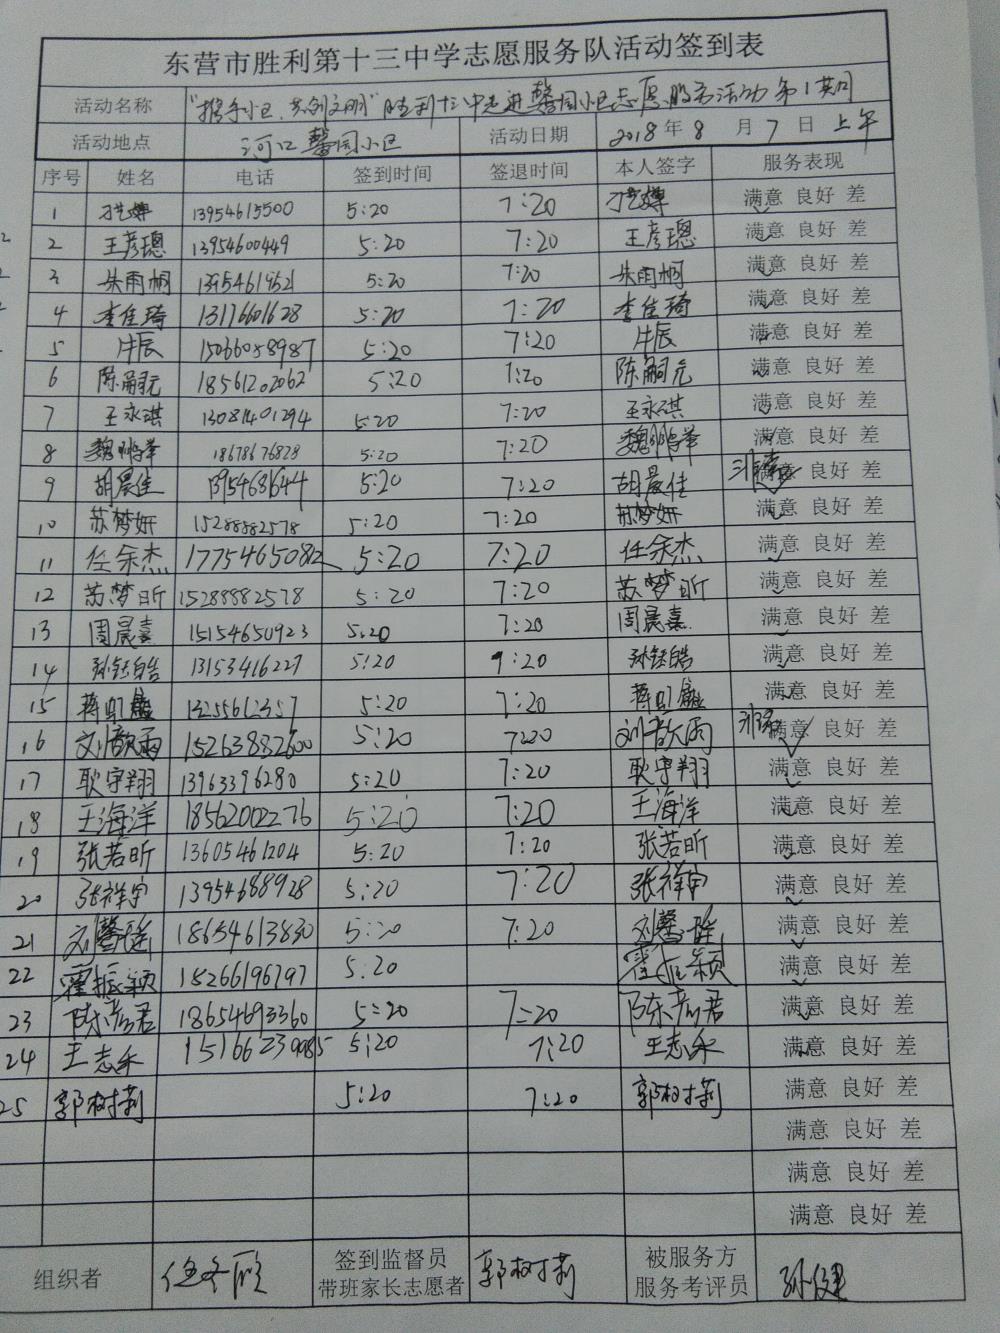 东营市胜利第十三中学志愿服务队活动签到表
活动名称 "携手小区,共创文明"胜利十三中走进馨园小区志愿服务活动第1期
活动地点 河口馨园小区 活动日期 2018年8月7日上午
序号 姓名 电话 签到时间 签退时间 本人签字 服务表现
1 13954615500 5:20 7:20 满意 良好 差
2 王彦璁 13954600449 5:20 7:20 王彦璁 满意 良好 差
3 朱雨桐 5:20 7:20 朱雨桐 满意 良好 差
4 李佳琦 13176601628 5:20 7:20 李佳琦 满意 良好 差
5 牛辰 15066058987 5:20 7:20 牛辰 满意 良好 差
6 陈嗣元 18561202062 5:20 7:20 陈嗣元 满意 良好 差
7 王永琪 13081401294 5:20 7:20 王永琪 满意 良好 差
8 18678676828 5:20 7:20 满意 良好 差
9 胡晨佳 13954681644 5:20 7:20 胡晨佳 非常满意 良好 差
10 苏梦妍 15288882578 5:20 7:20 苏梦妍 满意 良好 差
11 任余杰 17754650812 5:20 7:20 任余杰 满意 良好 差
12 苏梦昕 15288882578 5:20 7:20 苏梦昕 满意 良好 差
13 周晨熹 15154650923 5:20 7:20 周晨熹 满意 良好 差
14 孙钰皓 13153416227 5:20 7:20 孙钰皓 满意 良好 差
15 13255612357 5:20 7:20 满意 良好 差
16 刘歆雨 15263882600 5:20 7:20 刘歆雨 满意 良好 差
17 耿宇翔 13963396280 5:20 7:20 耿宇翔 满意 良好 差
18 王海洋 18562002276 5:20 7:20 王海洋 满意 良好 差
19 张若昕 13605461204 5:20 7:20 张若昕 满意 良好 差
20 张祥宇 13954688928 5:20 7:20 张祥宇 满意 良好 差
21 刘馨瑶 18654613830 5:20 7:20 刘馨瑶 满意 良好 差
22 霍振颖 15266196797 5:20 满意 良好 差
23 陈彦君 18654693360 5:20 7:20 陈彦君 满意 良好 差
24 王志禾 5:20 7:20 王志禾 满意 良好 差
25 郭树莉 5:20 7:20 郭树莉 满意 良好 差
满意 良好 差
满意 良好 差
满意 良好 差
组织者 签到监督员 带班家长志愿者 郭树莉 被服务方 服务考评员 孙健